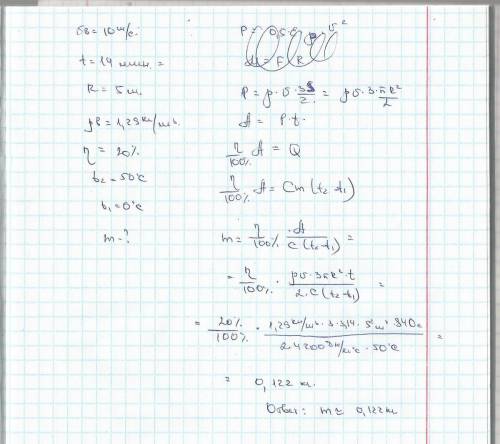 υв = 10 м/с.
t = 14 мин. =
R = 5 м.
ρв = 1,29 кг/м³.
η = 20%
t₂ = 50°C
t₁ = 0°C
m - ?
P = 0,5 υ²
M = F R
P = ρ · υ · 3S/2 = ρυ · 3 · πR²/2
A = P · t.
η/100% A = Q
η/100% A = Cm (t₂ - t₁)
m = η/100% · A/C(t₂ - t₁) =
= η/100% · ρυ · 3πR² · t/2 · C (t₂ - t₁) =
= 20%/100% · 1,29 кг/м³ · 3 · 3,14 · 5² м² · 840 с/2 · 4200 Дж/кг°C · 50°C =
= 0,122 кг.
Ответ: m ≈ 0,122 кг